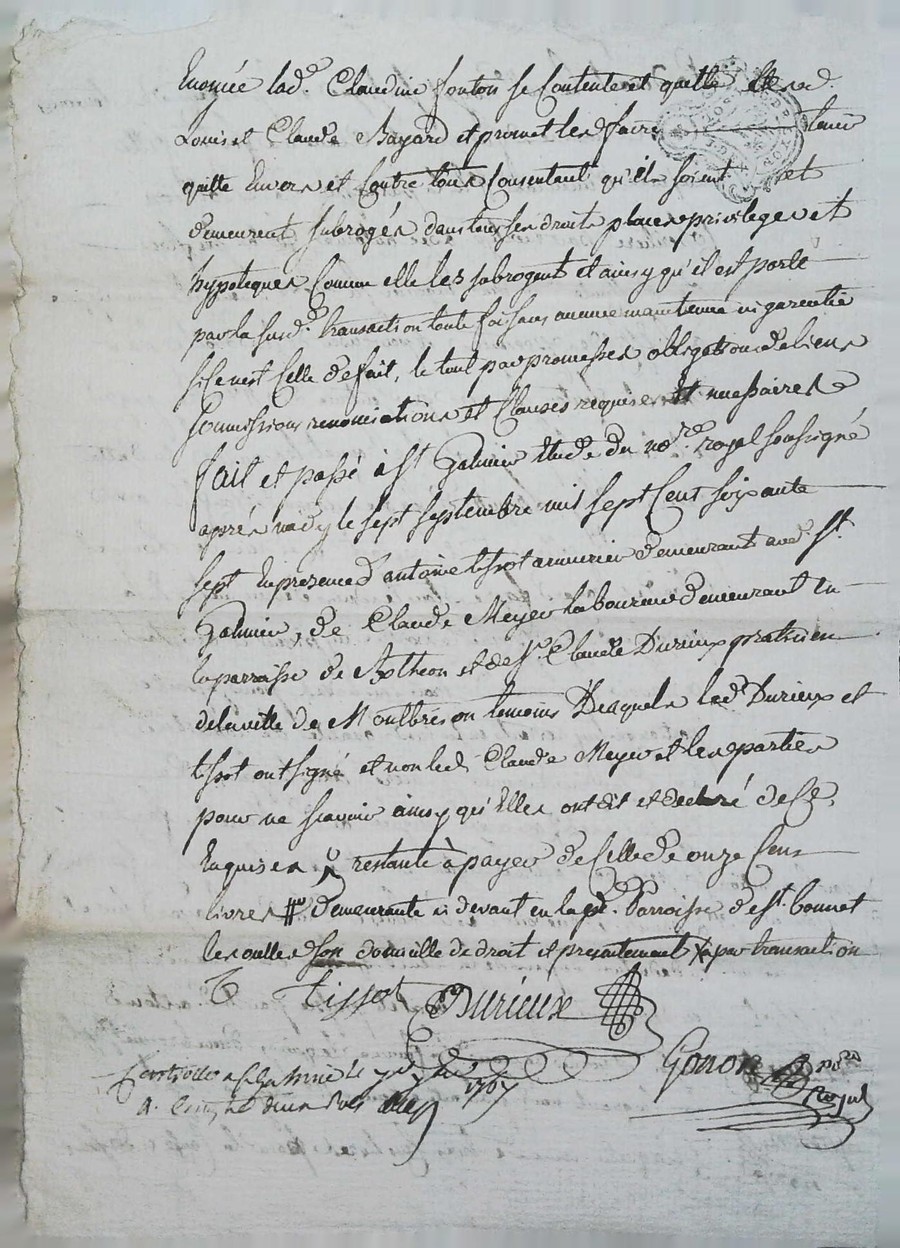 Enoncée lad.e Claudine fonton se Contente et quitte lesd.
Louis et Claude Bayard et promet les faire tenir
quitte Envers et Contre tous Consentant qu'ils soient et
demeurent subrogés dans tous ses droits places privileges et
hypoteques Comme elle les subrogent et ainsy qu'il est porté
par la susd.e transaction toute fois sans aucune maintenue ni garentie
si ce nest Celle de fait, le tout par promesses obligations de biens
soumissions renonciations et Clauses requises et necessaires
fait et passé à St Galmier Etude du no.re royal soussigné
après midy le sept septembre mil sept Cent soixante
sept En presence d'antoine tissot armurier demeurant aud. St.
Galmier, de Claude Meyer laboureur demeurant En
la parroisse de et de Sr. Claude Durieux praticien
de la ville de Montbrison temoins Desquels led. Durieux et
tissot ont signé et non led. Claude Meyer et les parties
pour ne scavoir ainsy qu'Elles ont dit et declaré de Ce
Enquises restante à payer de Celle de onze Cens
livres # demeurante ci devant en la pd. Parroisse de st. bonnet
les oulles son domicille de droit et presentement X par transaction
Tissot Durieux
Gonon no.re
royal
Controllé a St Galmier le 7.e 7bre 1767
R.